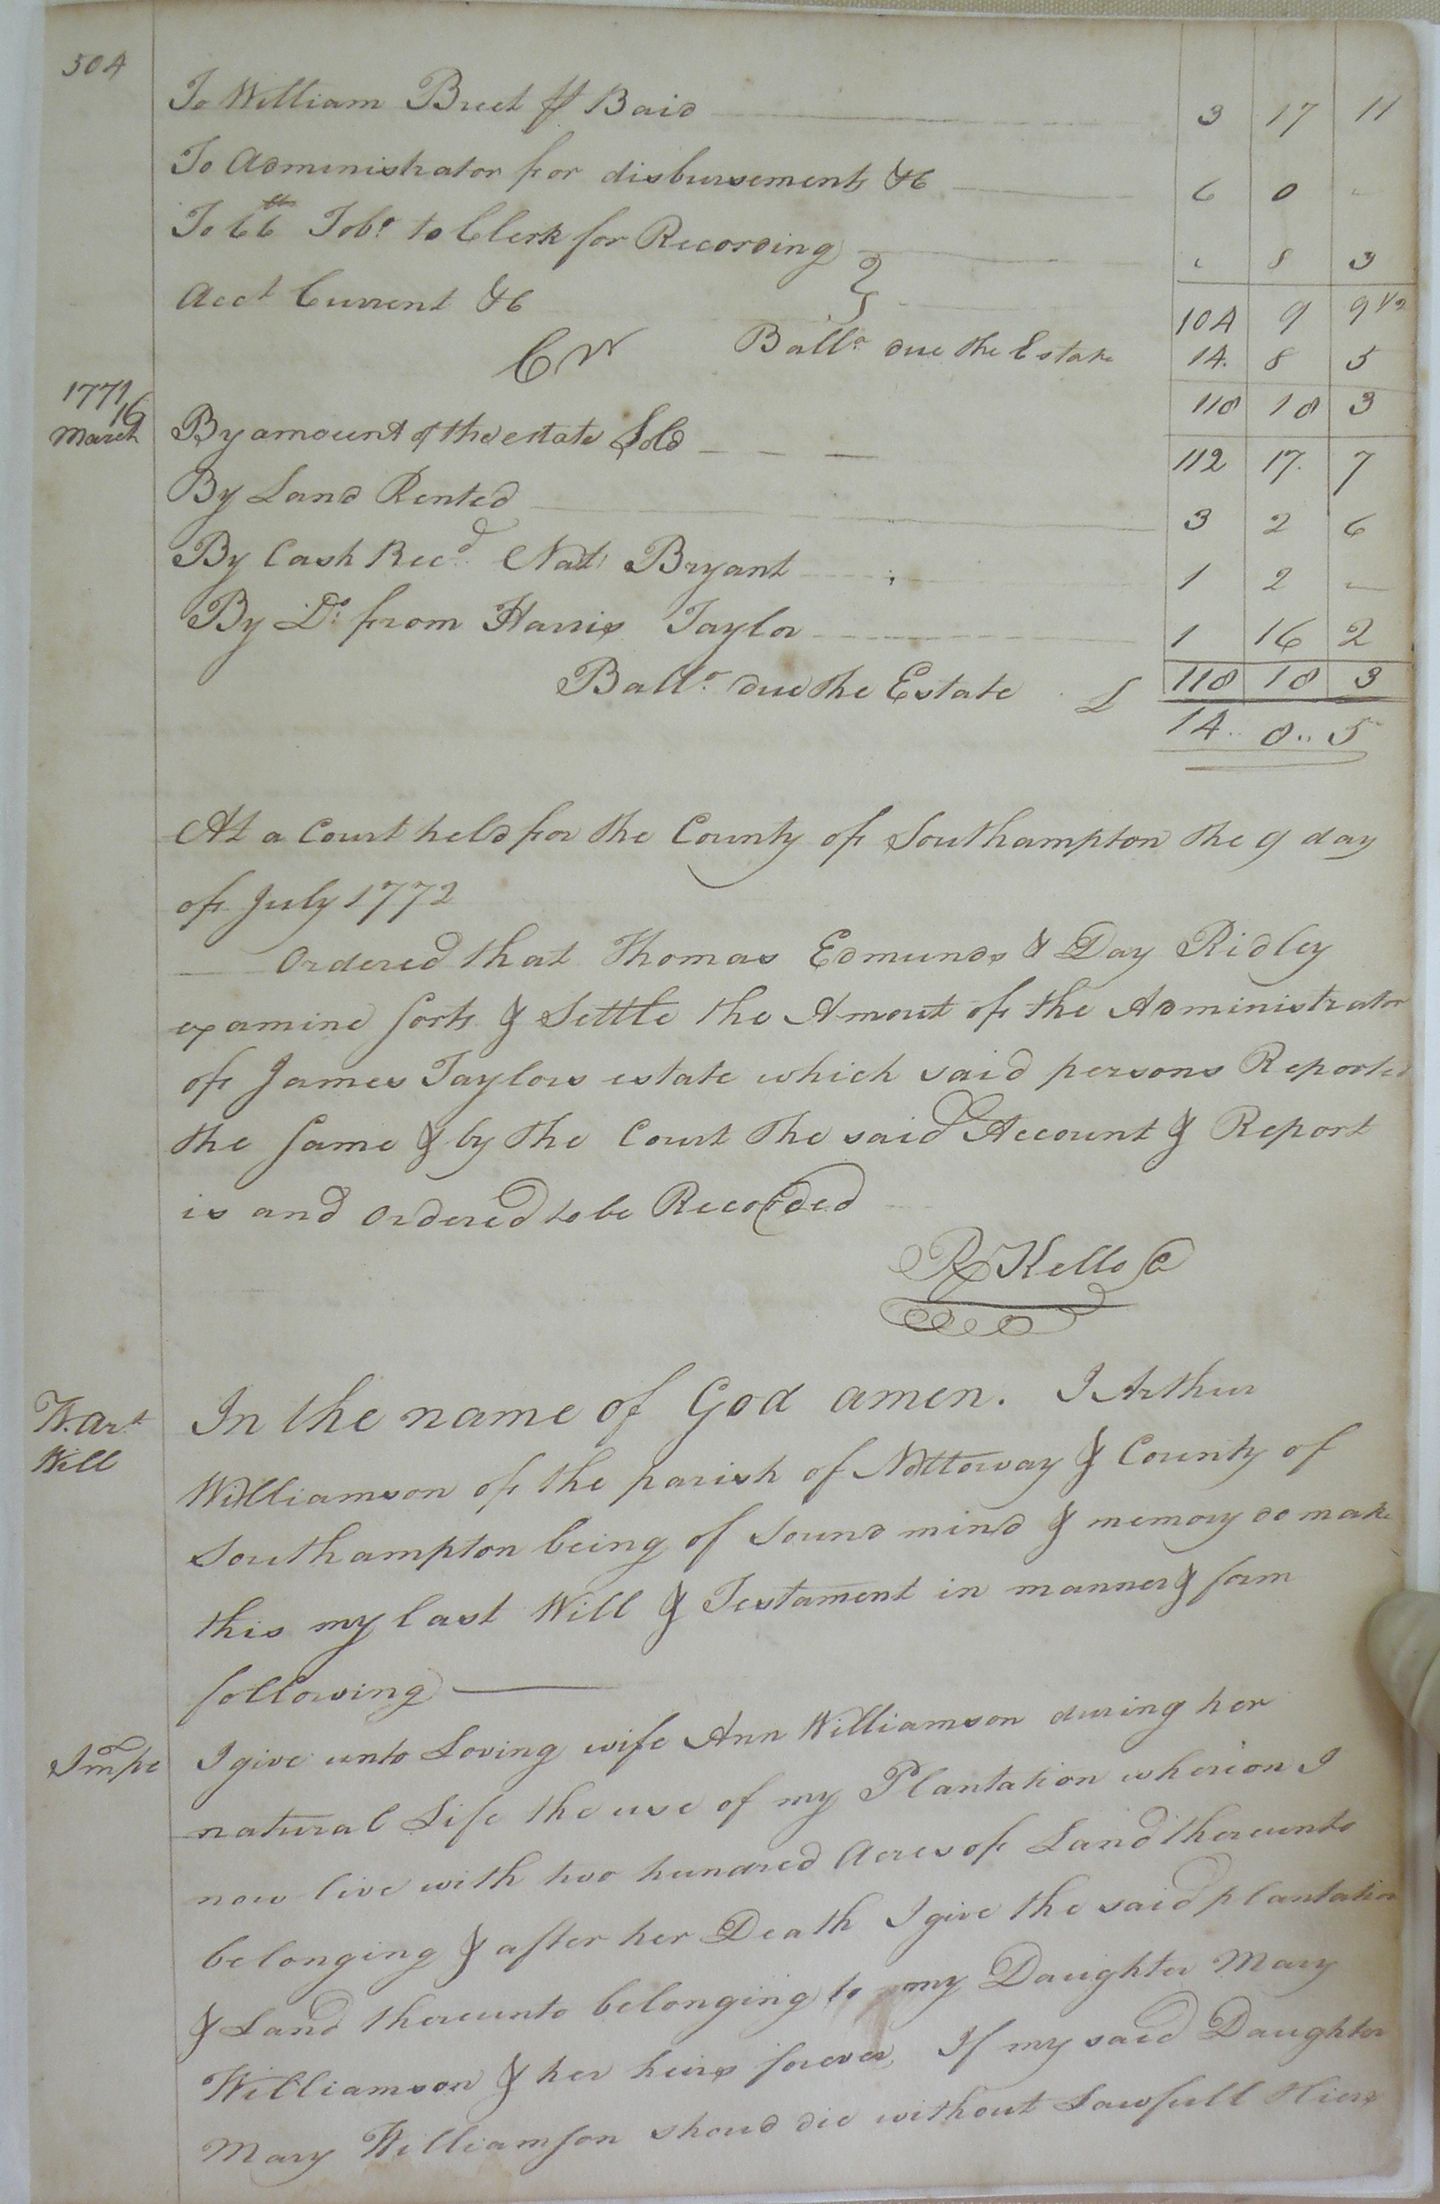 504
To William Breet ff Baid 3 17 11
To Administrator for disbursements &c 6 0 -
To 66 lb Tob.o to Clerk for Recording 8 3
Acct Current &c 104 9 9 1/2
Cr Ball.a due the Estate 14. 8 5
118 18 3
1771
16
March By amount of the estate Sold 112 17. 7
By Land Rented 3 2 6
By Cash Rec.d Nat: Bryant 1 2 —
By D.o from Harris Taylor 1 16 2
118 18 3
Ball.a due the Estate £ 14.. 8.. 5
At a Court held for the County of Southampton the 9 day
of July 1772
Ordered that Thomas Edmunds & Day Ridley
examine sorts & Settle the Amout of the Administrator
of James Taylors estate which said persons Reported
the same & by the Court the said Account & Report
is and ordered to be Recorded
R Kello C
W. Ar.t In the name of God amen. I Arthur
Will
Williamson of the parish of Nottoway & County of
Southampton being of sound mind & memory do make
this my last Will & Testament in manner & form
following
Imp.e I give unto Loving wife Ann Williamson during her
natural Life the use of my Plantation whereon I
now live with two hundred Acres of Land thereunto
belonging & after her Death I give the said plantation
& Land thereunto belonging to my Daughter Mary
Williamson & her heirs forever, If my said Daughter
Mary Williamson shoud die without Lawfull Hiers